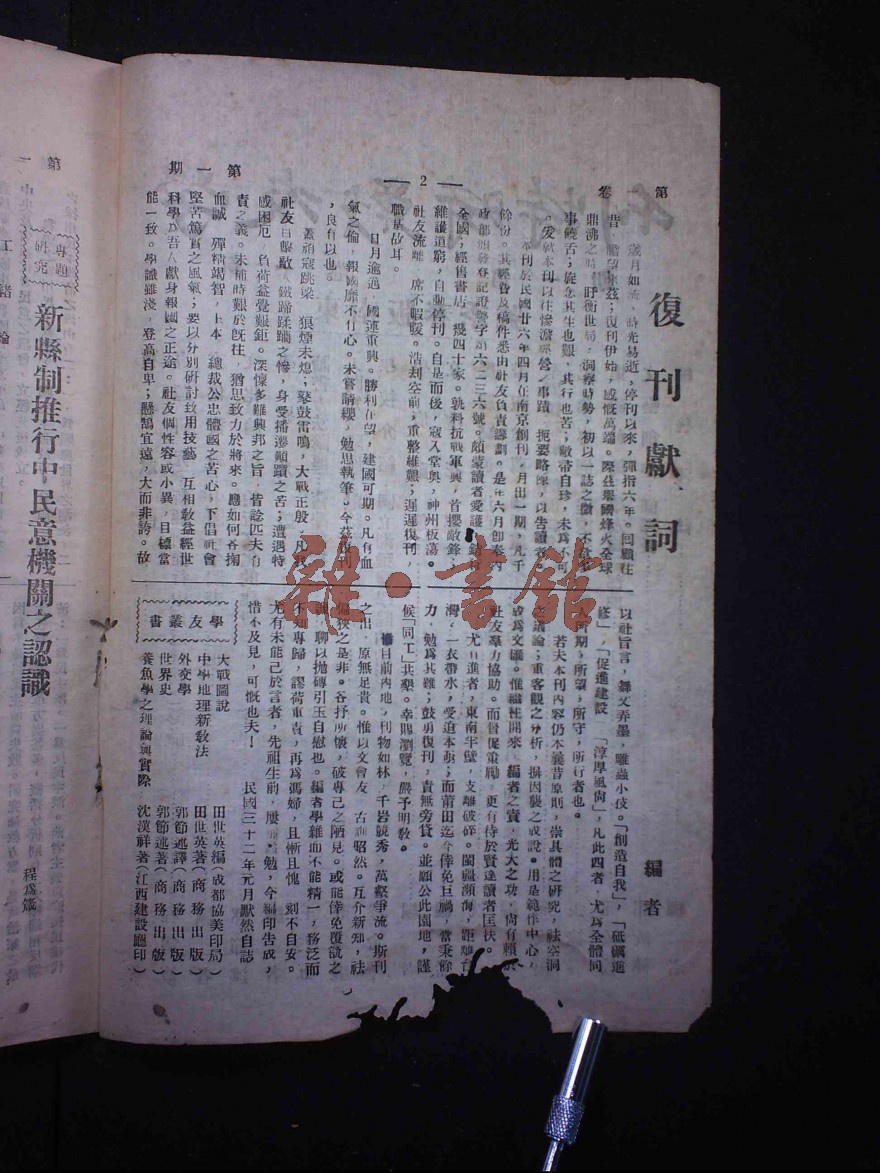 第一卷
— 2 —
第一期
復刊獻詞
編者
歲月如流,時光易逝,停刊以來,彈指六年。回顧往
昔,瞻望來茲;復刊伊始,感慨萬端。際茲舉國烽火全球
鼎沸之時,盱衡世局,洞察時勢,初以一誌之微,不敢多
事饒舌;旋念其生也艱,其行也苦;敝帚自珍,未為不可
。爰就本刊以往慘澹經營事蹟,扼要略陳,以告讀者。
本刊於民國廿六年四月在南京創刊,月出一期,凡千
餘份。其經費及稿件悉由社友負責籌劃。是年六月即奉內
政部頒發登記證警字第六二三六號。頗蒙讀者愛護,銷行
全國;經售書店,幾四十家。孰料抗戰軍興,首攖敵鋒;
維護道窮,自動停刊。自是而後,寇入堂奧,神州板蕩。
社友流離,席不暇暖。浩刦空前,重整維艱;遲遲復刊,
職是故耳。
日月逾邁,國運重興。勝利在望,建國可期。凡有血
氣之倫,報國靡不有心。未嘗請纓,勉思執筆。今茲復刊
,良有以也。
蓋頑寇跳梁,狼煙未熄;鼙鼓雷鳴,大戰正殷,凡我
社友目擊敵人鐵蹄蹂躪之慘,身受播遷顛躓之苦;遭遇特
感困厄,負荷益覺艱鉅。深懔多難興邦之旨,皆諗匹夫有
責之義。未補時艱於既往,猶思致力於將來。應如何各掬
血誠,殫精竭智,上本 總裁公忠體國之苦心,下倡社會
堅苦篤實之風氣;要以分別研討致用技藝,互相教益經世
科學,為吾人獻身報國之正途。社友個性容或小異,目標當
能一致。學識雖淺,登高自卑;懸鵠宜遠,大而非誇。故
以社旨言,舞文弄墨,雕蟲小伎。「創造自我」,「砥礪進
修」,「促進建設」「淳厚風尚」,凡此四者,尤為全體同
人所期,所望,所守,所行者也。
若夫本刊內容仍本曩昔原則,崇具體之研究,袪空洞
之議論;重客觀之分析,摒因襲之成說。用是範作中心,
或為文藪。惟繼往開來,編者之責,光大之功,尚有賴於
社友羣力協助。而督促策勵,更有待於賢達讀者匡扶。
尤有進者,東南半壁,支離破碎。閩疆瀕海,距離台
灣,一衣帶水,受迫本甚;而莆田迄今倖免巨禍,當秉餘
力,勉為其難;鼓勇復刊,責無旁貸。並願公此園地,謹
候「同工」共墾。幸賜瀏覽,嚴予明教。
抑目前內地,刊物如林,千岩競秀,萬壑爭流。斯刊
之出,原無足貴。惟以文會友,古訓昭然。互介新知,袪
偏狹之是非。各抒所懷,破專己之陋見。或能倖免覆瓿之
譏,聊以拋磚引玉自慰也。編者學雜而不能精一,務泛而
不知專歸,謬荷重責,再為馮婦,且慚且愧,刻不自安。
尤有未能已於言者,先祖生前,屢加勗勉,今編印告成,
惜不及見,可慨也夫!
民國三十二年元月默然自誌
學友叢書
大戰圖說 田世英編(成都協美印局)
中學地理新教法 田世英著(商務出版)
外交學 郭節述譯(商務出版)
世界史 郭節述著(商務出版)
養魚學之理論與實際 沈漢祥著(江西建設廳印)
雜·書館
第一
專題
研究
新縣制推行中民意機關之認識
程為箴